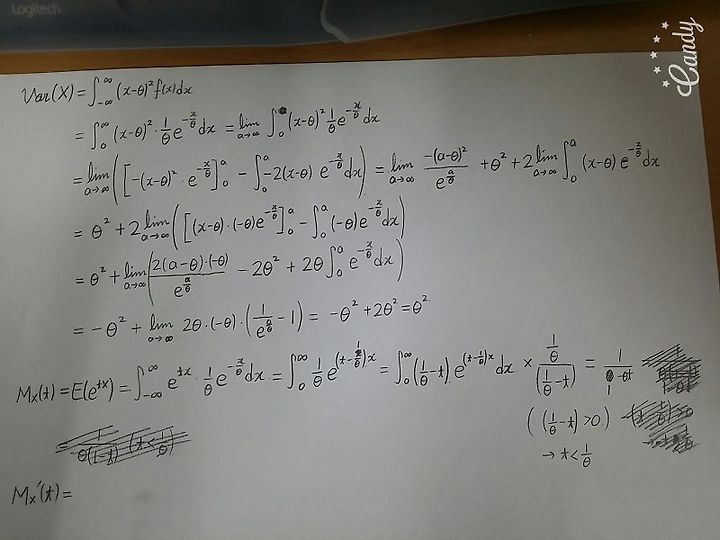 Logitech
Candy
Var(X) = ∫_{-∞}^{∞} (x-θ)² f(x) dx
= ∫_0^∞ (x-θ)² · 1/θ e^{-x/θ} dx = lim_{a→∞} ∫_0 (x-θ)² 1/θ e^{-x/θ} dx
= lim_{a→∞} ( [ -(x-θ)² · e^{-x/θ} ]_0^a - ∫_0^a -2(x-θ) e^{-x/θ} dx ) = lim_{a→∞} -(a-θ)² / e^{a/θ} + θ² + 2 lim_{a→∞} ∫_0^a (x-θ) e^{-x/θ} dx
= θ² + 2 lim_{a→∞} ( [ (x-θ)·(-θ) e^{-x/θ} ]_0^a - ∫_0^a (-θ) e^{-x/θ} dx )
= θ² + lim_{a→∞} ( 2(a-θ)·(-θ) / e^{a/θ} - 2θ² + 2θ ∫_0^a e^{-x/θ} dx )
= -θ² + lim_{a→∞} 2θ·(-θ)·( 1/e^{a/θ} - 1 ) = -θ² + 2θ² = θ²
Mx(t) = E(e^{tx}) = ∫_{-∞}^{∞} e^{tx} · 1/θ e^{-x/θ} dx = ∫_0^∞ 1/θ e^{(t-1/θ)x} = ∫_0^∞ (1/θ - t) e^{(t-1/θ)x} dx × (1/θ) / (1/θ - t) = 1 / (1-θt)
( (1/θ - t) > 0 )
→ t < 1/θ
Mx'(t) =